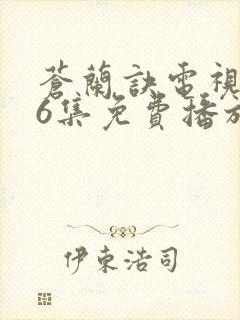 蒼蘭訣電視
6集免費播放
伊東浩司